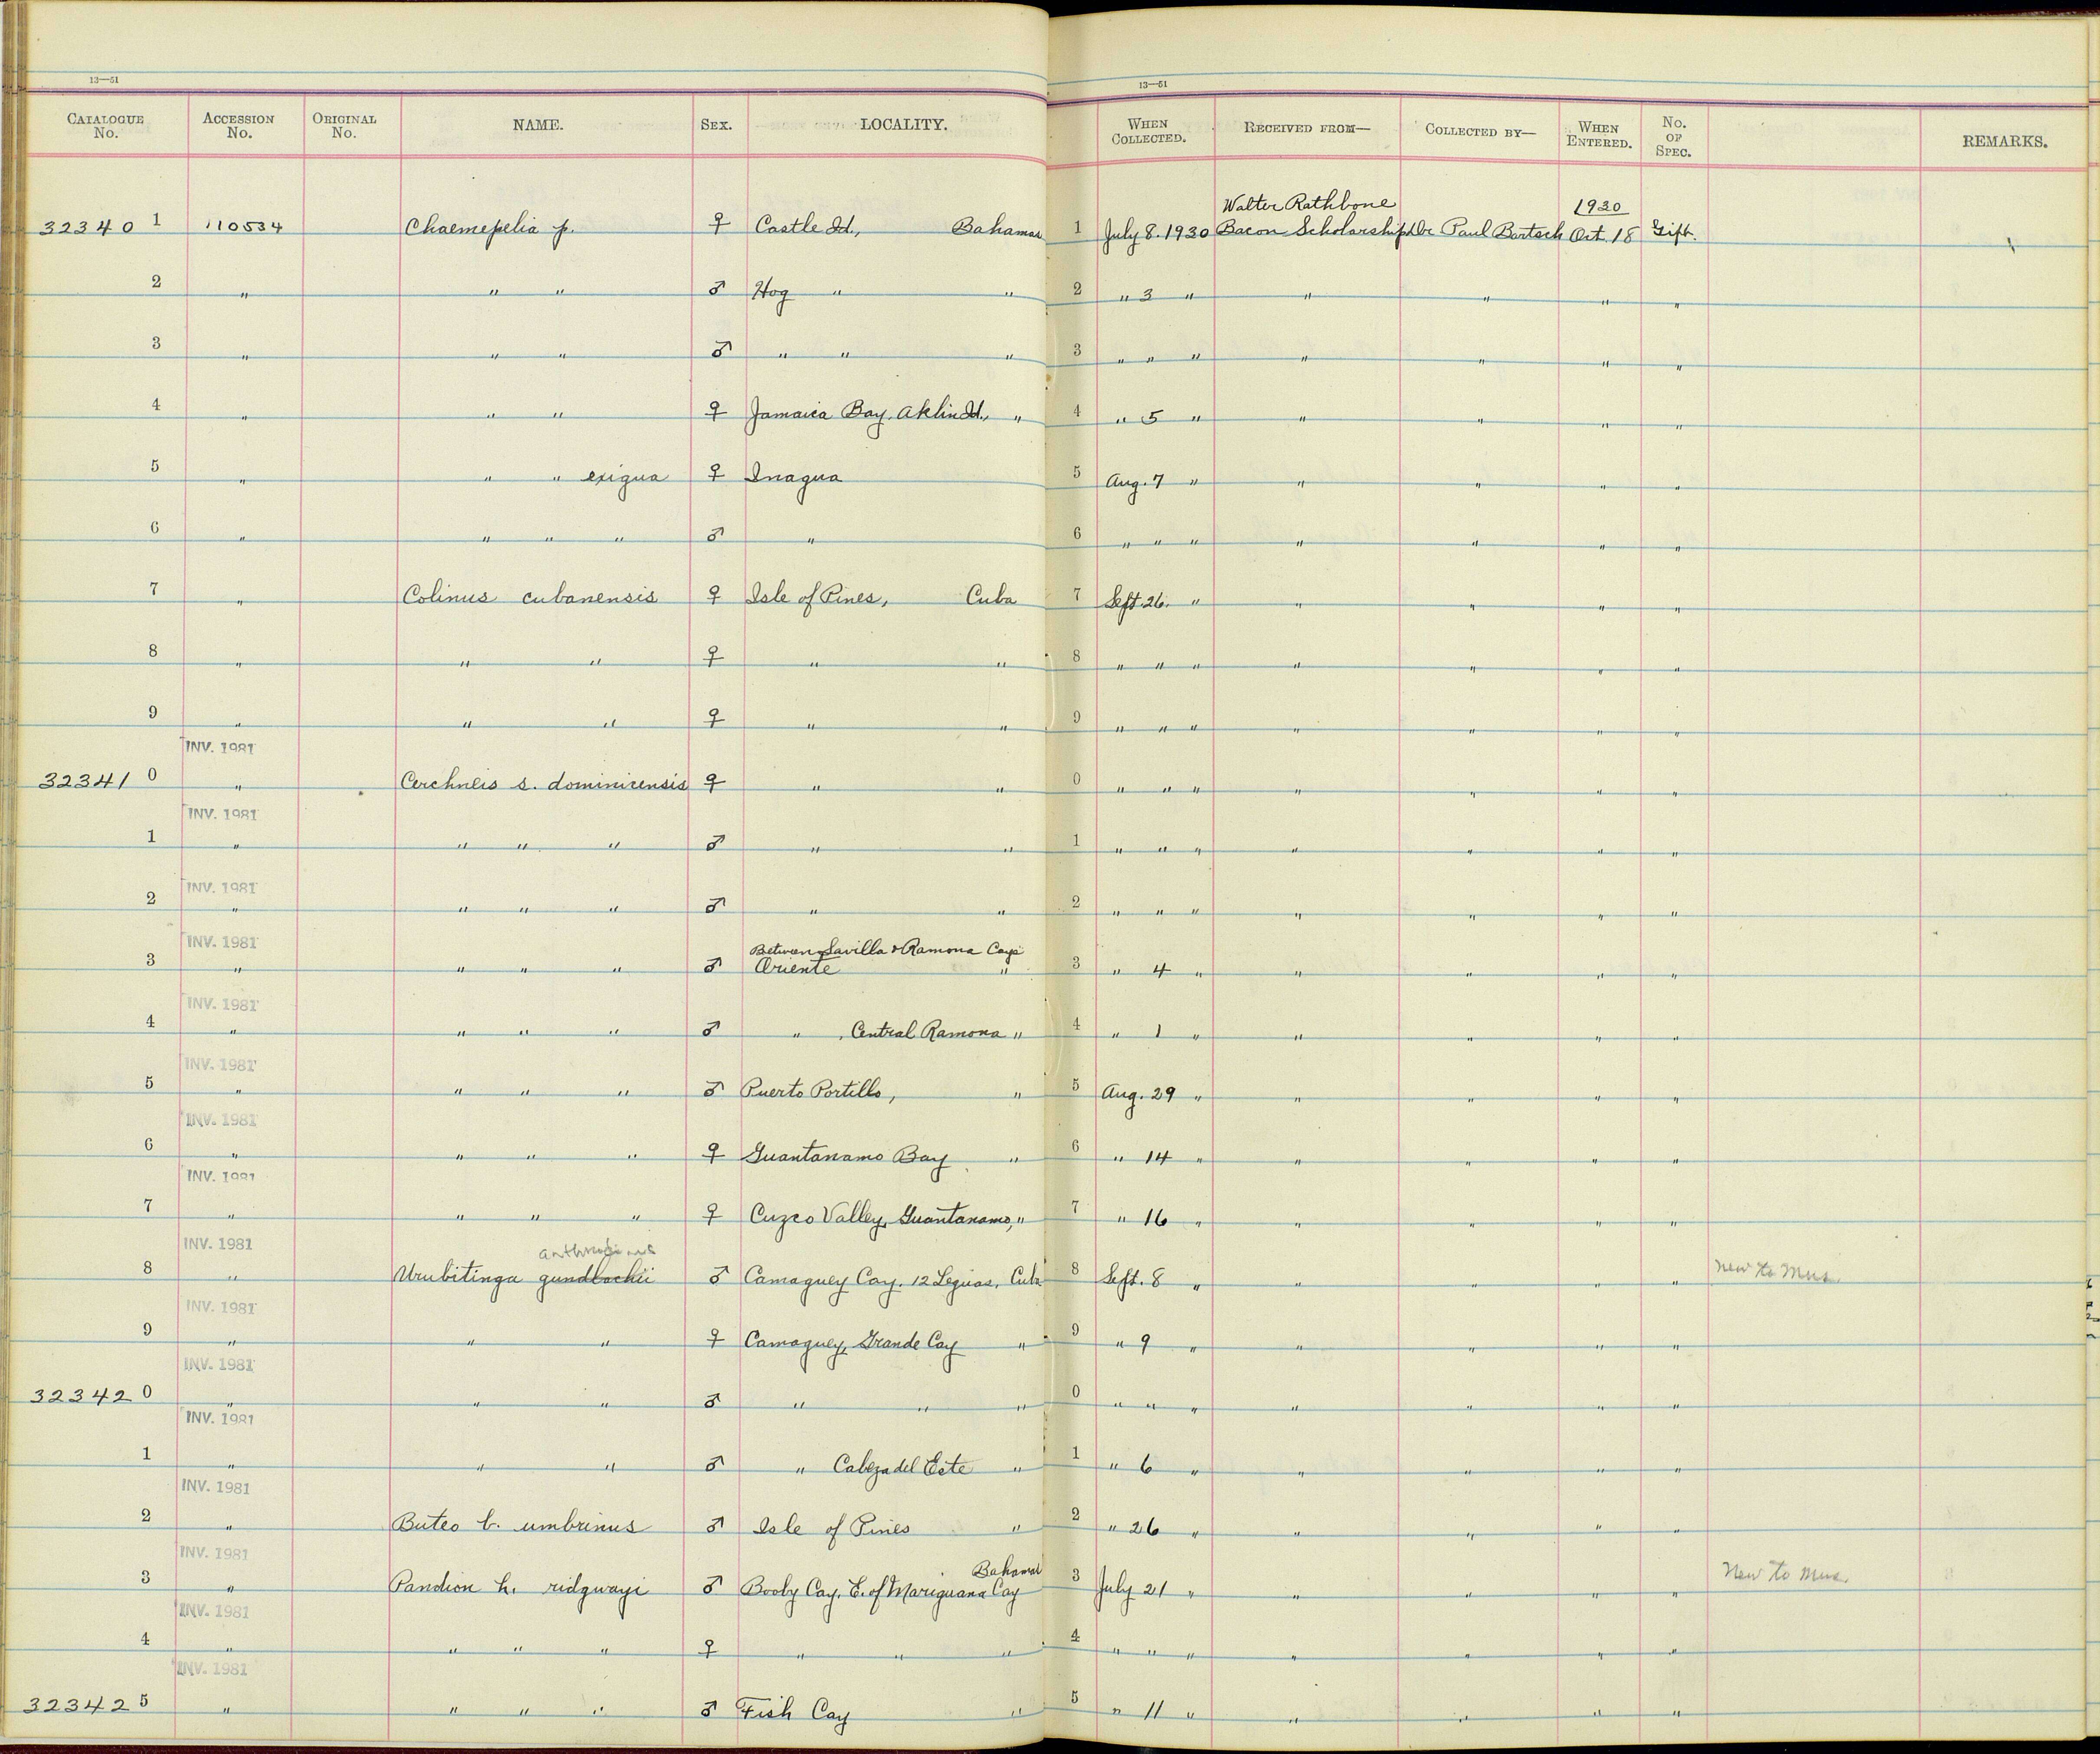 13—51
13—51
CATALOGUE No. ACCESSION No. ORIGINAL No. NAME. SEX. LOCALITY. WHEN COLLECTED. RECEIVED FROM— COLLECTED BY— WHEN ENTERED. No. OF SPEC. REMARKS.
Walter Rathbone 1930
32340 1 110534 Chaemepelia p. ♀ Castle Id., Bahamas 1 July 8. 1930 Bacon Scholarship Dr Paul Bartsch Oct. 18 Gift.
2 " " " ♂ Hog " " 2 " 3 " " " " "
3 " " " ♂ " " " 3 " " " " " " "
4 " " " ♀ Jamaica Bay, Aklin Id., " 4 " 5 " " " " "
5 " " " exigua ♀ Inagua 5 Aug. 7 " " " " "
6 " " " " ♂ " 6 " " " " " " "
7 " Colinus cubanensis ♀ Isle of Pines, Cuba 7 Sept. 26. " " " " "
8 " " " ♀ " " 8 " " " " " " "
9 " " " ♀ " " 9 " " " " " " "
INV. 1981
32341 0 " Cerchneis s. dominicensis ♀ " " 0 " " " " " " "
INV. 1981
1 " " " " ♂ " " 1 " " " " " " "
INV. 1981
2 " " " " ♂ " " 2 " " " " " " "
INV. 1981 Between Savilla & Ramona Cays
3 " " " " ♂ Oriente " 3 " 4 " " " " "
INV. 1981
4 " " " " ♂ " , Central Ramona " 4 " 1 " " " " "
INV. 1981
5 " " " " ♂ Puerto Portillo, " 5 Aug. 29 " " " " "
INV. 1981
6 " " " " ♀ Guantanamo Bay " 6 " 14 " " " " "
INV. 1981
7 " " " " ♀ Cuzco Valley, Guantanamo, " 7 " 16 " " " " "
INV. 1981 anthracinus
8 " Urubitinga gundlachii ♂ Camaguey Cay. 12 Leguas, Cuba 8 Sept. 8 " " " " " New to Mus.
INV. 1981
9 " " " ♀ Camaguey, Grande Cay " 9 " 9 " " " " "
INV. 1981
32342 0 " " " ♂ " " " 0 " " " " " " "
INV. 1981
1 " " " ♂ " Cabeza del Este " 1 " 6 " " " " "
INV. 1981
2 " Buteo b. umbrinus ♂ Isle of Pines " 2 " 26 " " " " "
INV. 1981 Bahamas
3 " Pandion h. ridgwayi ♂ Booby Cay, E. of Mariguana Cay 3 July 21 " " " " " New to Mus.
INV. 1981
4 " " " " ♀ " " " 4 " " " " " " "
INV. 1981
32342 5 " " " " ♂ Fish Cay " 5 " 11 " " " " "